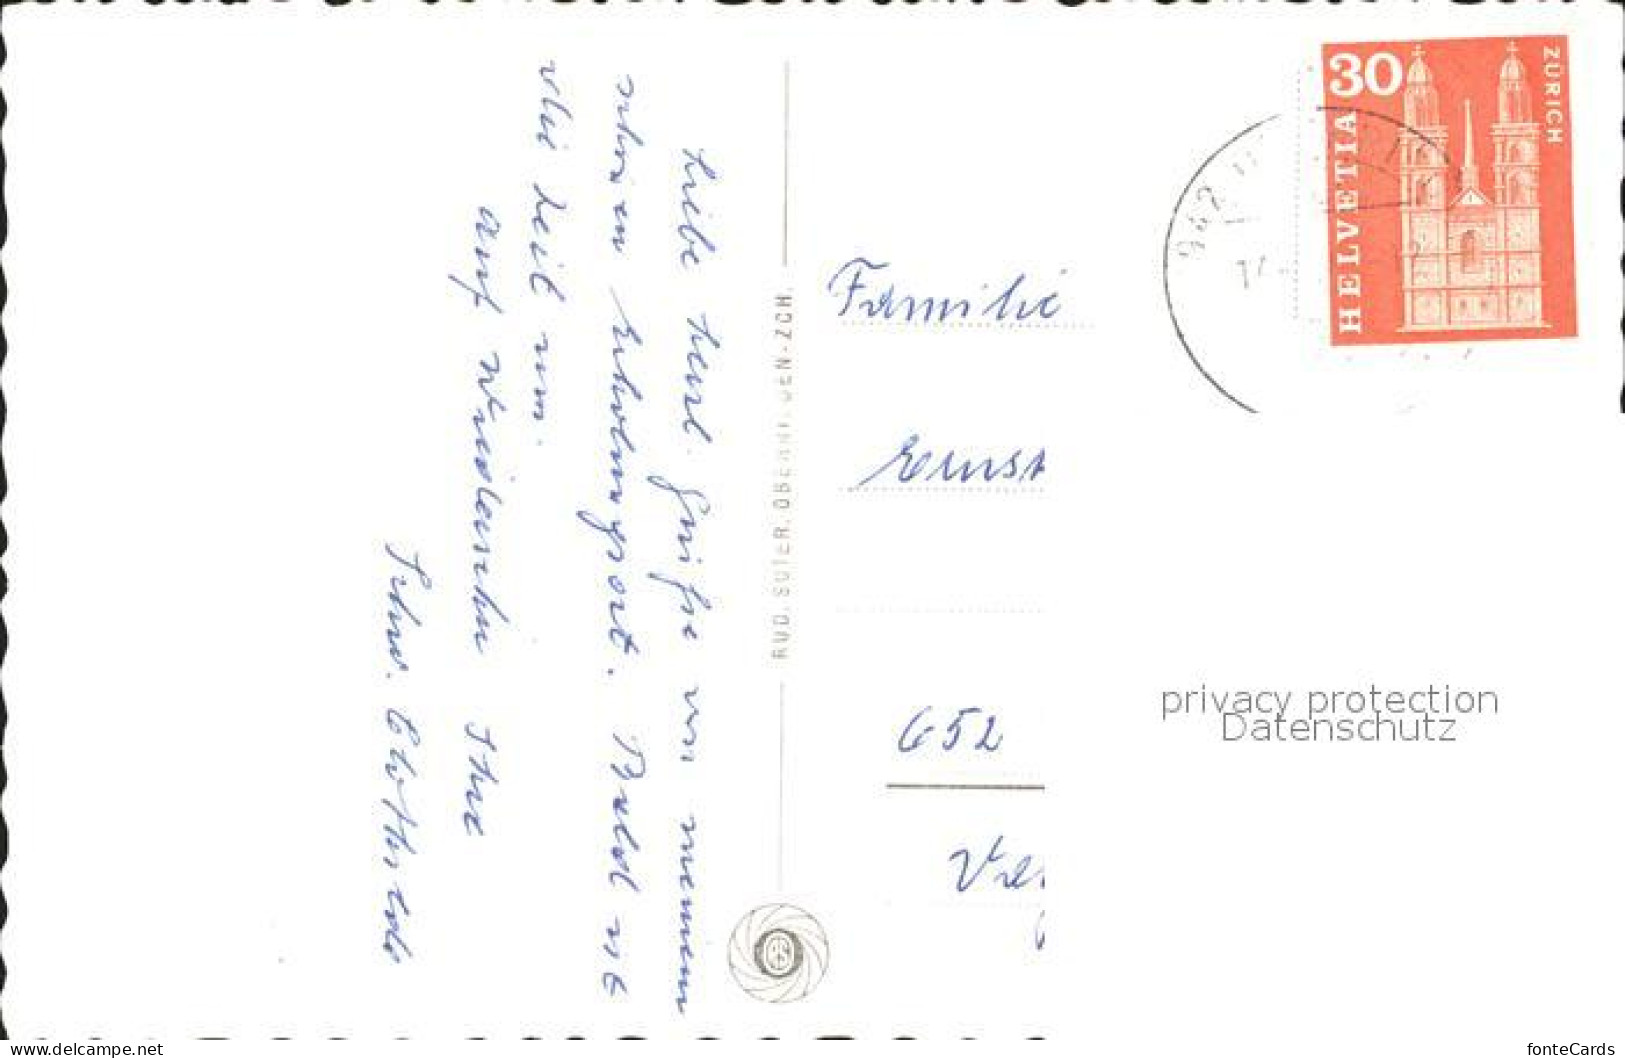 Liebe Fam. Grüße von meinem
schönen Erholungsort. Bald ist
die Zeit um.
Auf Wiedersehn Ihre
Schw. Clothilde
RUD. SUTER, OBERRIEDEN-ZCH.
Familie
Ernst
652
30
HELVETIA
ZÜRICH
privacy protection
Datenschutz
www.delcampe.net
fonteCards